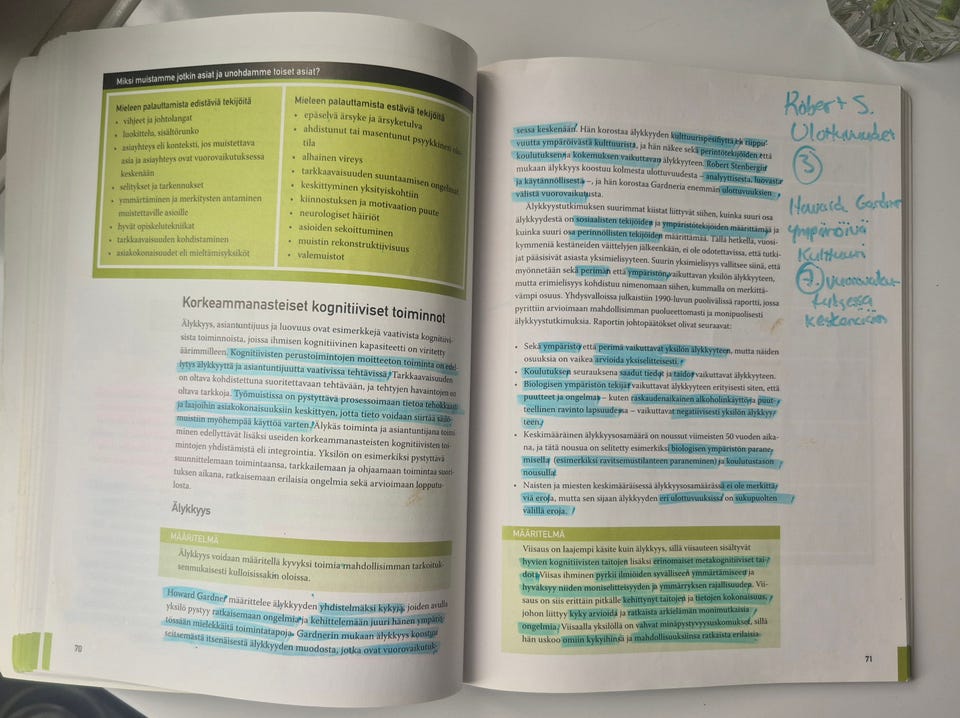 Miksi muistamme jotkin asiat ja unohdamme toiset asiat?
Mieleen palauttamista edistäviä tekijöitä
• vihjeet ja johtolangat
• luokittelu, sisältörunko
• asiayhteys eli konteksti, jos muistettava
asia ja asiayhteys ovat vuorovaikutuksessa
keskenään
• selitykset ja tarkennukset
• ymmärtäminen ja merkitysten antaminen
muistettaville asioille
• hyvät opiskelutekniikat
• tarkkaavaisuuden kohdistaminen
• asiakokonaisuudet eli mieltämisyksiköt
Mieleen palauttamista estäviä tekijöitä
• epäselvä ärsyke ja ärsyketulva
• ahdistunut tai masentunut psyykkinen
tila
• alhainen vireys
• tarkkaavaisuuden suuntaamisen ongelmat
• keskittyminen yksityiskohtiin
• kiinnostuksen ja motivaation puute
• neurologiset häiriöt
• asioiden sekoittuminen
• muistin rekonstruktiivisuus
• valemuistot
Korkeammanasteiset kognitiiviset toiminnot
Älykkyys, asiantuntijuus ja luovuus ovat esimerkkejä vaativista kognitiivi-
sista toiminnoista, joissa ihmisen kognitiivinen kapasiteetti on viritetty
äärimmilleen. Kognitiivisten perustoimintojen moitteeton toiminta on edel-
lytys älykkyyttä ja asiantuntijuutta vaativissa tehtävissä. Tarkkaavaisuuden
on oltava kohdistettuna suoritettavaan tehtävään, ja tehtyjen havaintojen on
oltava tarkkoja. Työmuistissa on pystyttävä prosessoimaan tietoa tehokkaasti
ja laajoihin asiakokonaisuuksiin keskittyen, jotta tieto voidaan siirtää säilö-
muistiin myöhempää käyttöä varten. Älykäs toiminta ja asiantuntijana toimi-
minen edellyttävät lisäksi useiden korkeammanasteisten kognitiivisten toi-
mintojen yhdistämistä eli integrointia. Yksilön on esimerkiksi pystyttävä
suunnittelemaan toimintaansa, tarkkailemaan ja ohjaamaan toimintaa suori-
tuksen aikana, ratkaisemaan erilaisia ongelmia sekä arvioimaan lopputu-
losta.
Älykkyys
MÄÄRITELMÄ
Älykkyys voidaan määritellä kyvyksi toimia mahdollisimman tarkoituk-
senmukaisesti kulloisissakin oloissa.
Howard Gardner määrittelee älykkyyden yhdistelmäksi kykyjä, joiden avulla
yksilö pystyy ratkaisemaan ongelmia ja kehittelemään juuri hänen ympäris-
tössään mielekkäitä toimintatapoja. Gardnerin mukaan älykkyys koostuu
seitsemästä itsenäisestä älykkyyden muodosta, jotka ovat vuorovaikutuk-
70
sessa keskenään. Hän korostaa älykkyyden kulttuurispesifiyttä eli riippu-
vuutta ympäröivästä kulttuurista, ja hän näkee sekä perintötekijöiden että
koulutuksen ja kokemuksen vaikuttavan älykkyyteen. Robert Stenbergin
mukaan älykkyys koostuu kolmesta ulottuvuudesta – analyyttisesta, luovasta
ja käytännöllisestä –, ja hän korostaa Gardneria enemmän ulottuvuuksien
välistä vuorovaikutusta.
Älykkyystutkimuksen suurimmat kiistat liittyvät siihen, kuinka suuri osa
älykkyydestä on sosiaalisten tekijöiden ja ympäristötekijöiden määrittämää ja
kuinka suuri osa perinnöllisten tekijöiden määrittämää. Tällä hetkellä, vuosi-
kymmeniä kestäneiden väittelyjen jälkeenkään, ei ole odotettavissa, että tutki-
jat pääsisivät asiasta yksimielisyyteen. Suurin yksimielisyys vallitsee siinä, että
myönnetään sekä perimän että ympäristön vaikuttavan yksilön älykkyyteen,
mutta erimielisyys kohdistuu nimenomaan siihen, kummalla on merkittä-
vämpi osuus. Yhdysvalloissa julkaistiin 1990-luvun puolivälissä raportti, jossa
pyrittiin arvioimaan mahdollisimman puolueettomasti ja monipuolisesti
älykkyystutkimuksia. Raportin johtopäätökset olivat seuraavat:
• Sekä ympäristö että perimä vaikuttavat yksilön älykkyyteen, mutta näiden
osuuksia on vaikea arvioida yksiselitteisesti.
• Koulutuksen seurauksena saadut tiedot ja taidot vaikuttavat älykkyyteen.
• Biologisen ympäristön tekijät vaikuttavat älykkyyteen erityisesti siten, että
puutteet ja ongelmat – kuten raskaudenaikainen alkoholinkäyttö ja puut-
teellinen ravinto lapsuudessa – vaikuttavat negatiivisesti yksilön älykkyy-
teen.
• Keskimääräinen älykkyysosamäärä on noussut viimeisten 50 vuoden aika-
na, ja tätä nousua on selitetty esimerkiksi biologisen ympäristön parane-
misella (esimerkiksi ravitsemustilanteen paraneminen) ja koulutustason
nousulla.
• Naisten ja miesten keskimääräisessä älykkyysosamäärässä ei ole merkittä-
viä eroja, mutta sen sijaan älykkyyden eri ulottuvuuksissa on sukupuolten
välillä eroja.
MÄÄRITELMÄ
Viisaus on laajempi käsite kuin älykkyys, sillä viisauteen sisältyvät
hyvien kognitiivisten taitojen lisäksi erinomaiset metakognitiiviset tai-
dot. Viisas ihminen pyrkii ilmiöiden syvälliseen ymmärtämiseen ja
hyväksyy niiden moniselitteisyyden ja ymmärryksen rajallisuuden. Vii-
saus on siis erittäin pitkälle kehittynyt taitojen ja tietojen kokonaisuus,
johon liittyy kyky arvioida ja ratkaista arkielämän monimutkaisia
ongelmia. Viisaalla yksilöllä on vahvat minäpystyvyysuskomukset, sillä
hän uskoo omiin kykyihinsä ja mahdollisuuksiinsa ratkaista erilaisia
71
Robert S.
Ulottuvuudet
3
Howard Gardner
ympäröivä
kulttuuri
7. vuorovaiku-
tuksessa
keskenään